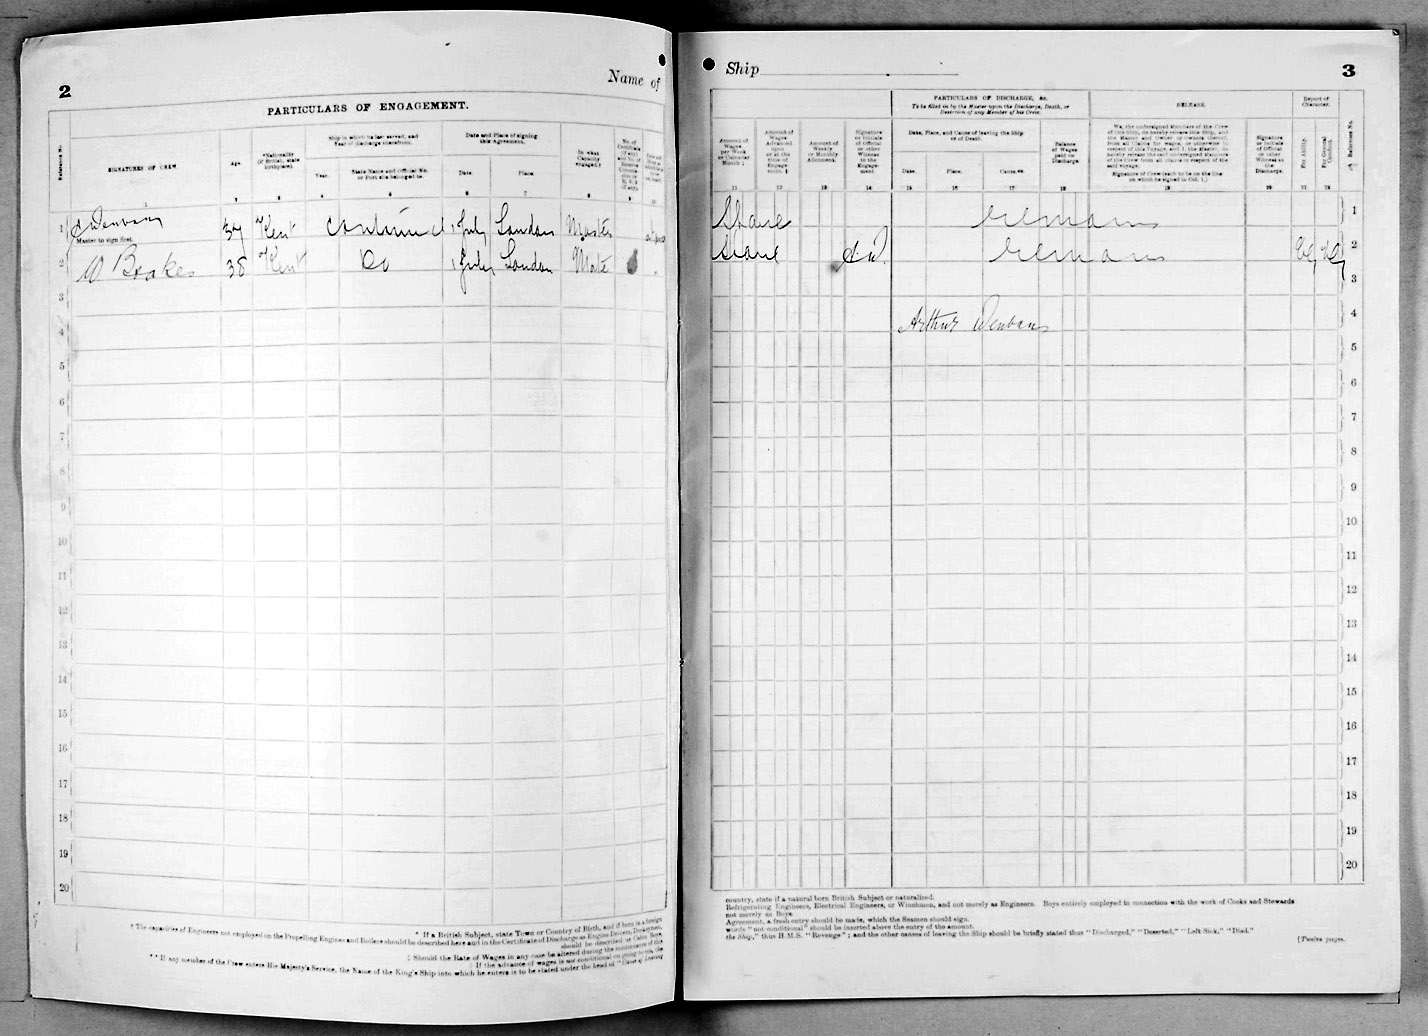 2
Name of
PARTICULARS OF ENGAGEMENT.
Reference No.
SIGNATURES OF CREW
Age.
*Nationality (if British, state birthplace).
Ship in which he last served, and Year of discharge therefrom.
Year.
State Name and Official No. or Port she belonged to.
Date and Place of signing this Agreement.
Date.
Place.
In what Capacity engaged.†
1 2 3 4 5 6 7 8 9 10
1 Wenban 37 Kent Continued 1 July London Master
Master to sign first.
2 W Brakes 38 Kent Do 1 July London Mate
3
4
5
6
7
8
9
10
11
12
13
14
15
16
17
18
19
20
* If a British Subject, state Town or Country of Birth, and if born in a foreign
† The capacities of Engineers not employed on the Propelling Engines and Boilers should be described here and in the Certificate of Discharge as Engine Drivers, Donkeymen,
should be described as Cabin Boys,
‡ Should the Rate of Wages in any case be altered during the continuance of this
If the advance of wages is not conditional on going to sea, the
** If any member of the Crew enters His Majesty's Service, the Name of the King's Ship into which he enters is to be stated under the head of "Cause of Leaving
Ship
3
PARTICULARS OF DISCHARGE, &c.
To be filled in by the Master upon the Discharge, Death, or Desertion of any Member of his Crew.
RELEASE.
Report of Character.
Amount of Wages per Week or Calendar Month ‡
Amount of Wages Advanced upon or at the time of Engagement. ‡
Amount of Weekly or Monthly Allotment.
Signature or Initials of Official or other Witness to the Engagement
Date, Place, and Cause of leaving the Ship or of Death.
Date.
Place.
Cause.**
Balance of Wages paid on Discharge.
We, the undersigned Members of the Crew of this Ship, do hereby release this Ship, and the Master and Owner or Owners thereof, from all Claims for wages, or otherwise in respect of this Voyage; and I, the Master, do hereby release the said undersigned Members of the Crew from all claims in respect of the said voyage.
Signatures of Crew (each to be on the line on which he signed in Col. 1.)
Signature or Initials of Official or other Witness to the Discharge.
For Ability.
For General Conduct.
Reference No.
11 12 13 14 15 16 17 18 19 20 21 22
Share remains 1
Share remains VG VG 2
3
Arthur Wenban 4
5
6
7
8
9
10
11
12
13
14
15
16
17
18
19
20
country, state if a natural born British Subject or naturalized.
Refrigerating Engineers, Electrical Engineers, or Winchmen, and not merely as Engineers. Boys entirely employed in connection with the work of Cooks and Stewards
not merely as Boys.
Agreement, a fresh entry should be made, which the Seamen should sign.
words "not conditional" should be inserted above the entry of the amount.
the Ship," thus H.M.S. "Revenge"; and the other causes of leaving the Ship should be briefly stated thus "Discharged," "Deserted," "Left Sick," "Died."
[Twelve pages.